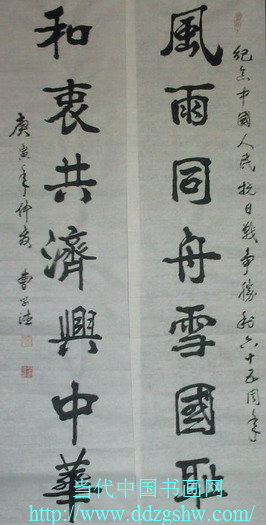 紀念中國人民抗日戰爭勝利六十五周年
風雨同舟雪國恥
和衷共濟興中華
庚寅年仲夏
當代中国书画网
http://www.ddzgshw.com/